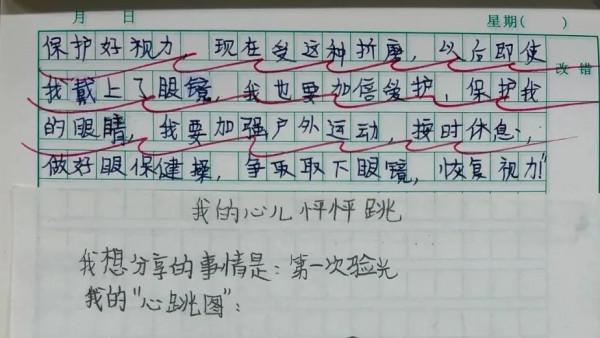 月 日 星期( )
保护好视力,现在受这种折磨,以后即使
改错
我戴上了眼镜,我也要加倍爱护,保护我
的眼睛,我要加强户外运动,按时休息,
做好眼保健操,争取取下眼镜,恢复视力!"
我的心儿怦怦跳
我想分享的事情是:第一次验光
我的"心跳图":